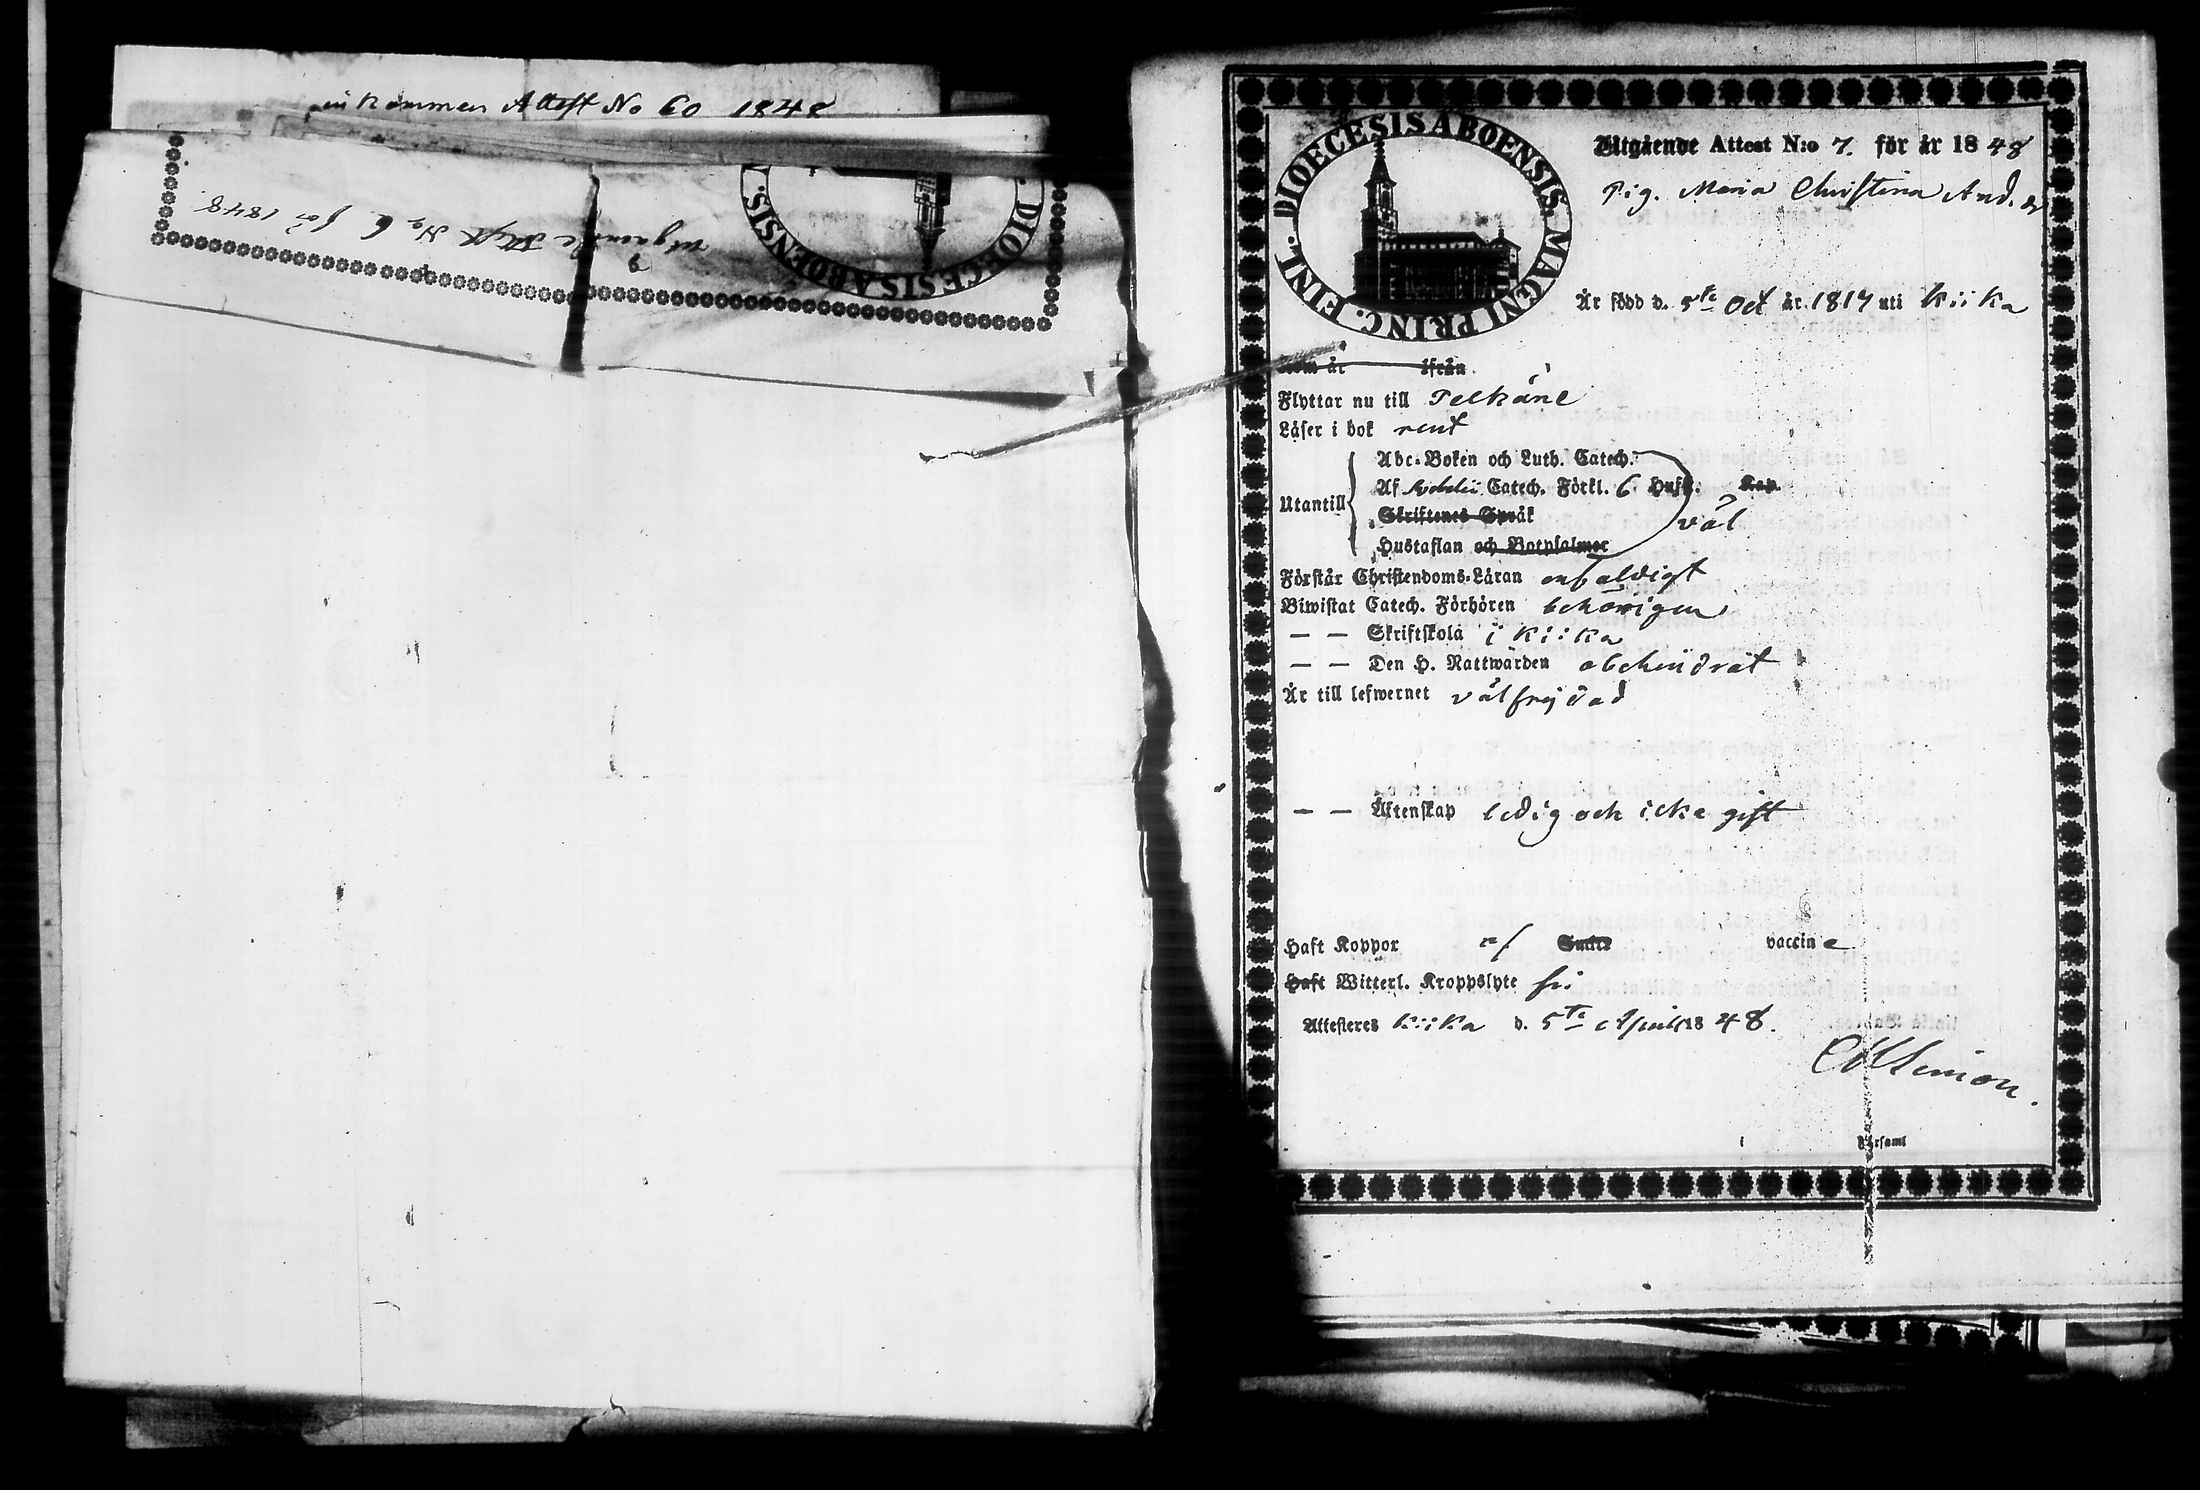 inkommen Attest No 60 1848
utgående Attest No 6 för 1848
DIOECESIS ABOENSIS
DIOECESIS ABOENSIS. MAGNI PRINC. FINL.
Utgående Attest N:o 7. för år 1848
Pig. Maria Christina And. dr
Är född d. 5te Oct år 1817 uti Kiika
Kom år ifrån
Flyttar nu till Pelkäne
Läser i bok rent
Utantill
Abc-Boken och Luth. Catech.
Af Svebelii Catech. Förkl. 6 Hufst. Kap.
Skriftenes Språk
väl
Hustaflan och Botpsalmer
Förstår Christendoms-Läran enfaldigt
Biwistat Catech. Förhören behörigen
— — Skriftskola i Kiika
— — Den H. Nattwarden obehindrat
Är till lefwernet välfrejdad
— — Äktenskap ledig och icke gift
Haft Koppor Smitt vaccine
Haft Witterl. Kroppslyte fri
Attesteres Kiika d. 5te April 1848.
i Församl